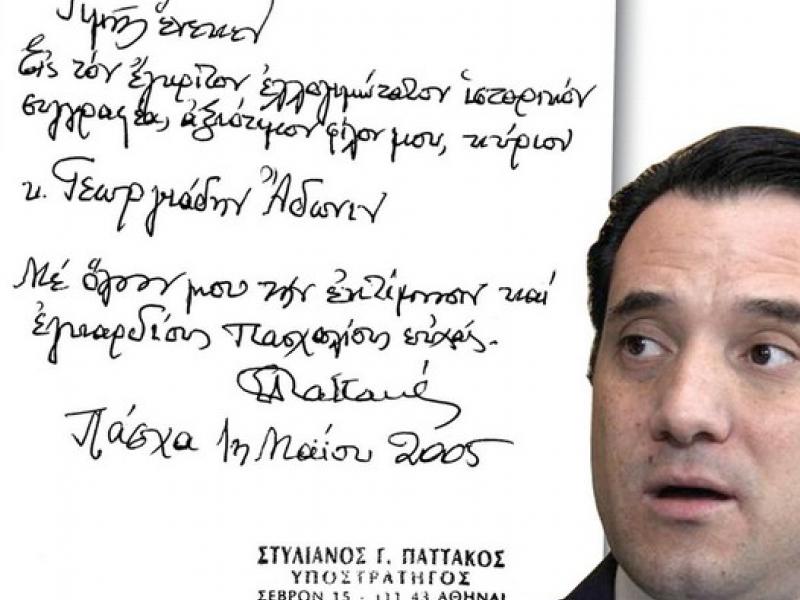 Τιμῆς ἕνεκεν
Εἰς τόν ἔγκριτον ἐλλογιμώτατον ἱστορικόν
συγγραφέα, ἀξιότιμον φίλον μου, κύριον
κ. Γεωργιάδην Ἄδωνιν
Μέ ὅλην μου τήν ἐκτίμησιν καί
ἐγκαρδίους πασχαλίους εὐχάς.
ΣΠαττακός
Πάσχα 1η Μαΐου 2005
ΣΤΥΛΙΑΝΟΣ Γ. ΠΑΤΤΑΚΟΣ
ΥΠΟΣΤΡΑΤΗΓΟΣ
ΣΕΒΡΩΝ 15 - 111 43 ΑΘΗΝΑΙ